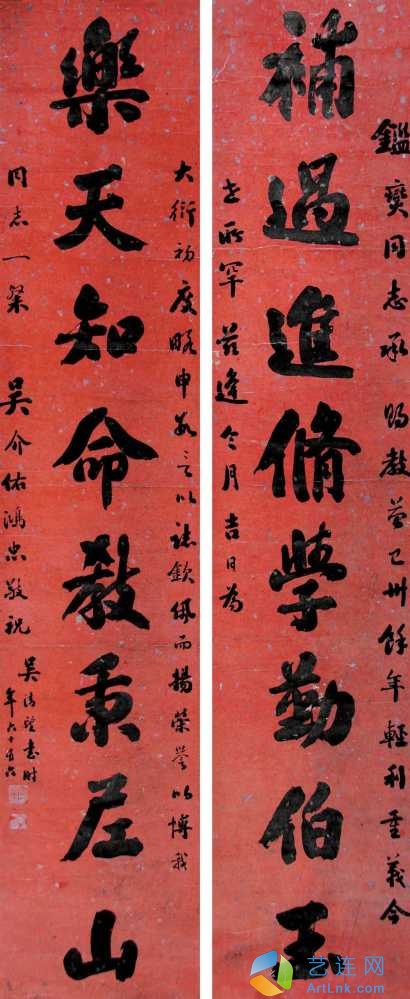 鑑奭同志承 賜教益已卅餘年輕利重義今
補過進脩學勤伯王
世所罕茲逢令月吉日為
大衍初度略申數言以誌欽佩而揚榮譽以博我
樂天知命教秉尼山
同志一粲 吳介佑鴻忠敬祝
吳 書時
年六十有六
艺连网
ArtLnk.com